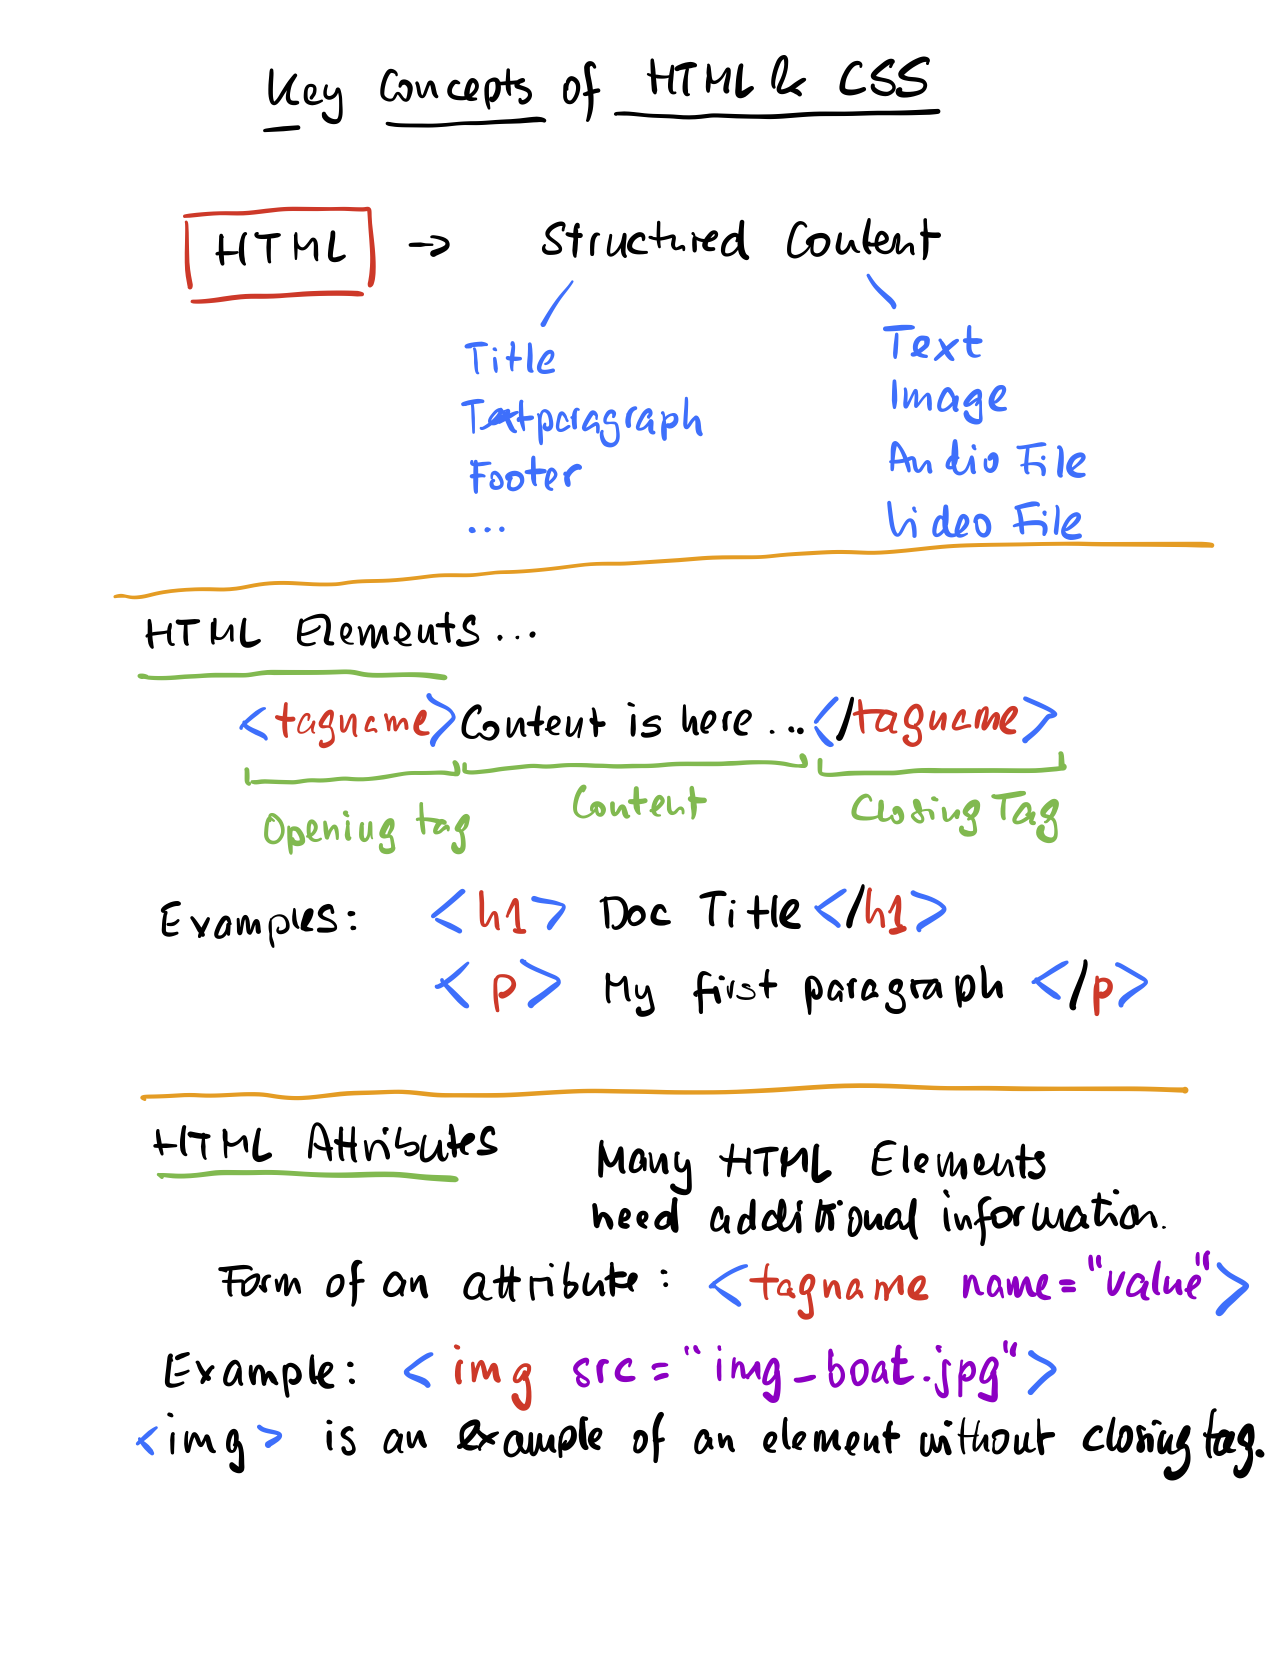 Key Concepts of HTML & CSS
HTML → Structured Content
Title
Textparagraph
Footer
...
Text
Image
Audio File
Video File
HTML Elements...
<tagname>Content is here ...</tagname>
Opening tag Content Closing Tag
Examples: <h1> Doc Title </h1>
<p> My first paragraph </p>
HTML Attributes
Many HTML Elements
need additional information.
Form of an attribute: <tagname name="value">
Example: <img src="img_boat.jpg">
<img> is an example of an element without closing tag.